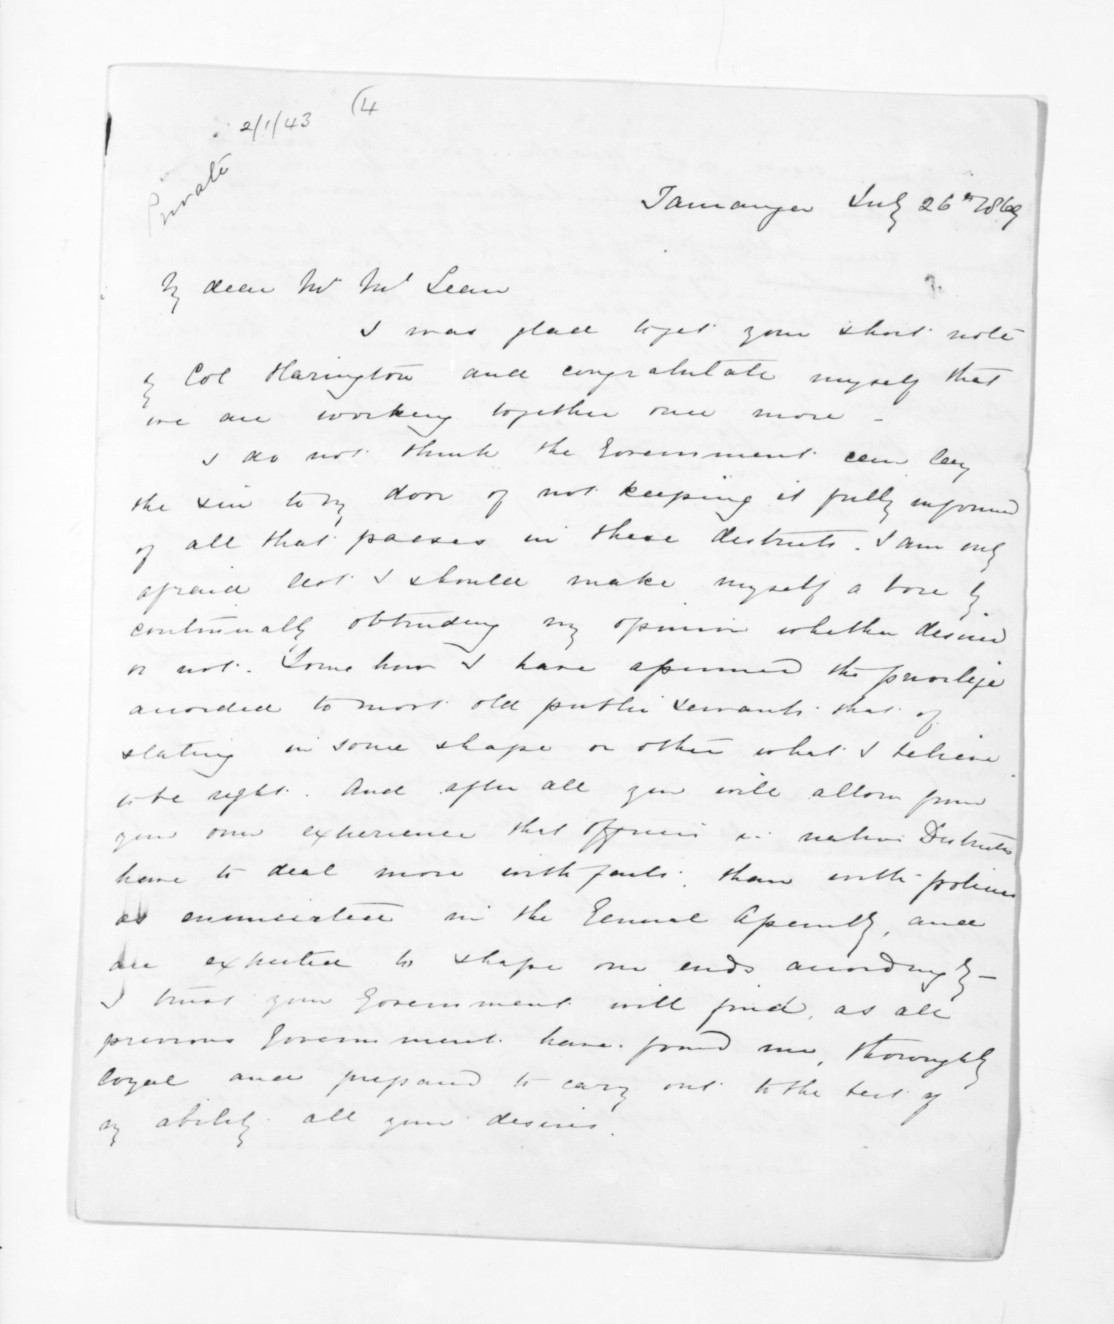 2/1/43 (4
Private
Tauranga July 26th 1869
My dear Mr Mc Lean
I was glad to get your short note
by Col Harington and congratulate myself that
we are working together once more -
I do not think the Government can lay
the sin to my door of not keeping it fully informed
of all that passes in these districts. I am only
afraid lest I should make myself a bore by
continually obtruding my opinion whether desired
or not. Some how I have assumed the privilege
accorded to most old public servants that of
stating in some shape or other what I believe
to be right. And after all you will allow from
your own experience that officers in native Districts
have to deal more with facts, than with policies
as enunciated in the General Assembly, and
are expected to shape our ends accordingly -
I trust your Government will find, as all
previous Government have found me, thoroughly
loyal and prepared to carry out to the best of
my ability all your desires.